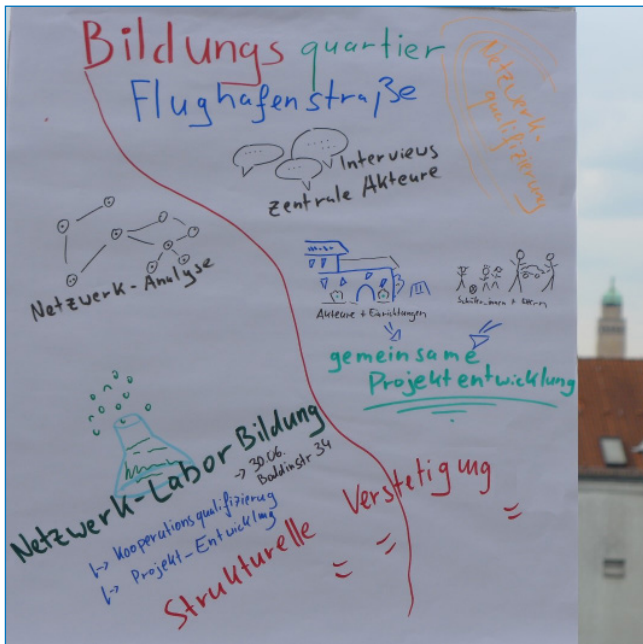 Bildungs quartier
Flughafenstraße
Netzwerk-
qualifizierung
Interviews
zentrale Akteure
Netzwerk-Analyse
Akteure + Einrichtungen
Schüler_innen + Eltern
gemeinsame
Projektentwicklung
Netzwerk-Labor Bildung
→ 30.06.
Boddinstr 34
↳ Kooperationsqualifizierung
↳ Projekt-Entwicklung
Strukturelle Verstetigung